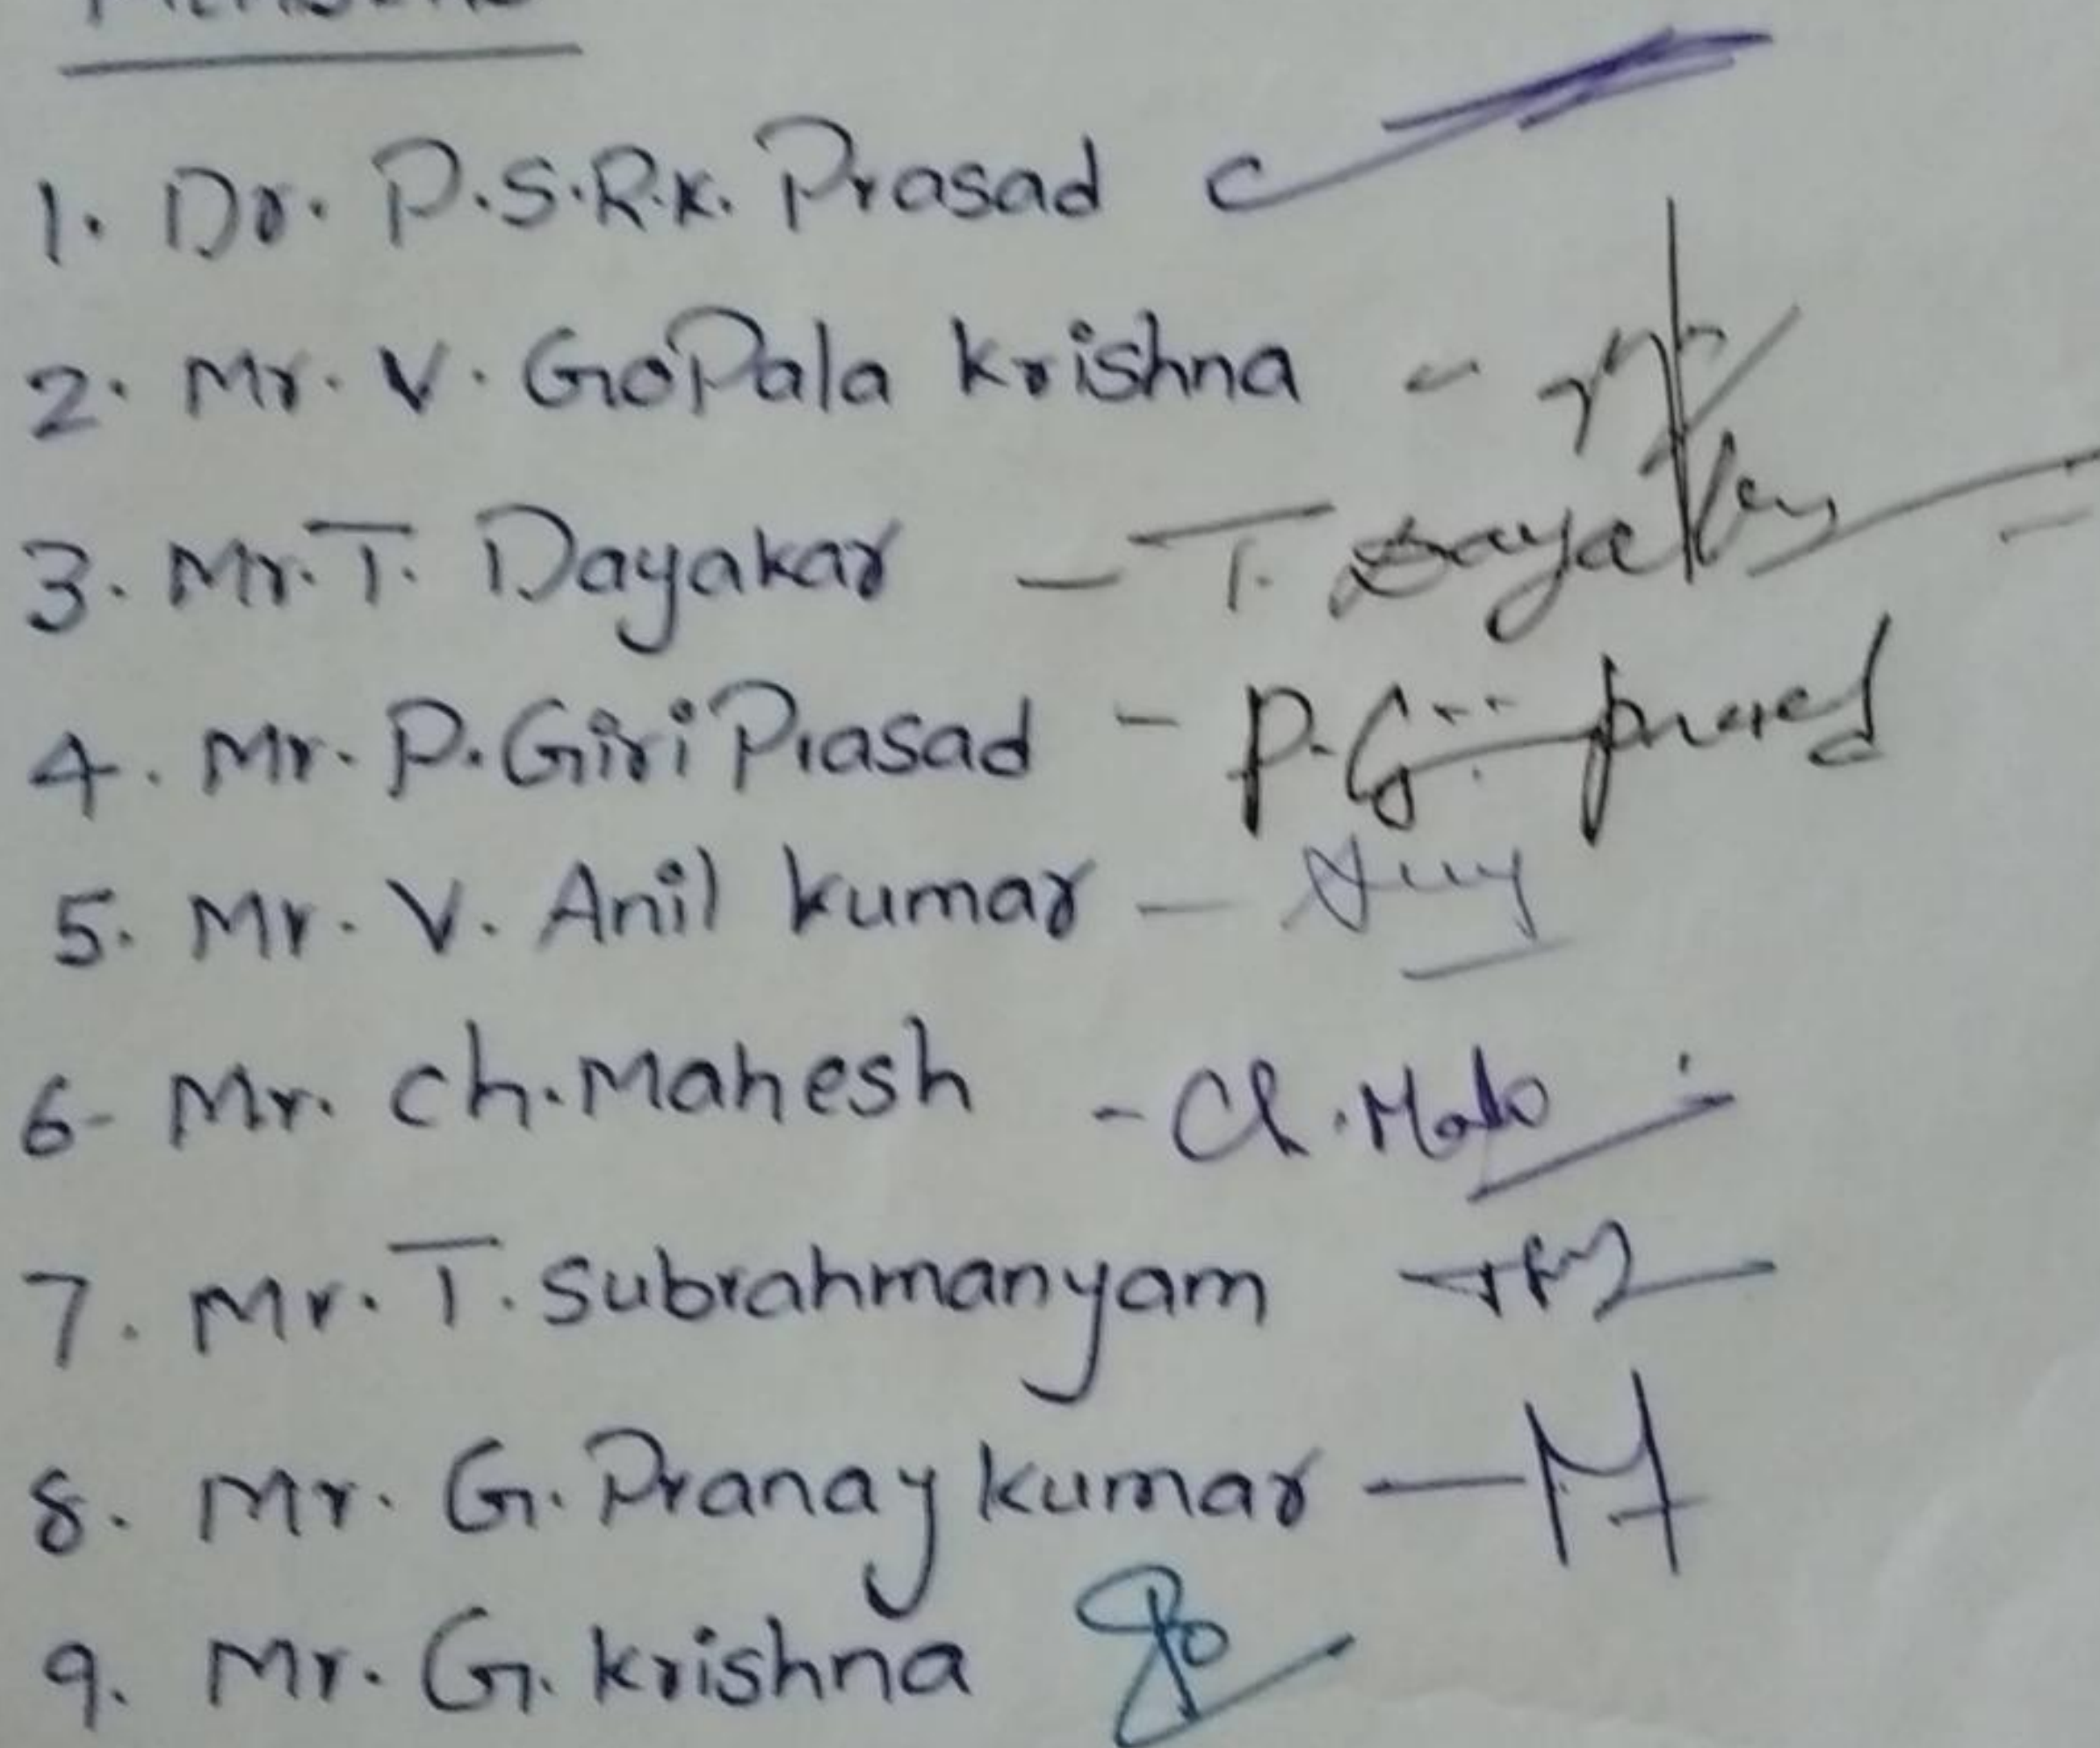 1. Dr. P.S.R.K. Prasad
2. Mr. V. GoPala krishna -
3. Mr. T. Dayakar - T.
4. Mr. P. Giri Prasad - P. Giri prasad
5. Mr. V. Anil kumar -
6- Mr. ch. Mahesh - Ch.
7. Mr. T. Subrahmanyam
8. Mr. G. Pranay kumar -
9. Mr. G. krishna